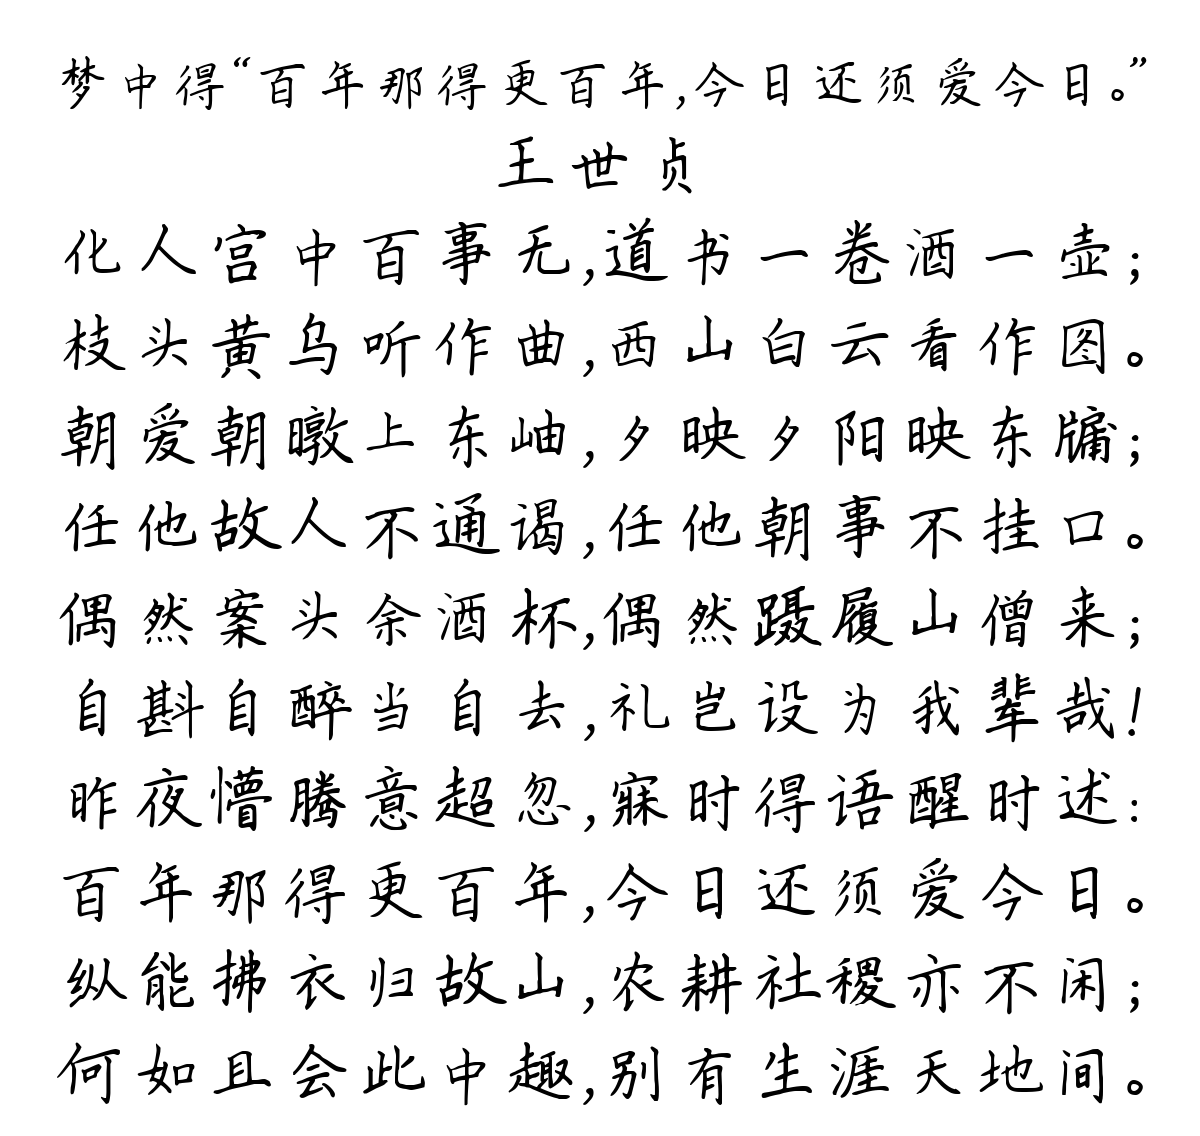 梦中得“百年那得更百年,今日还须爱今日。”
王世贞
化人宫中百事无,道书一卷酒一壶;
枝头黄乌听作曲,西山白云看作图。
朝爱朝暾上东岫,夕映夕阳映东牖;
任他故人不通谒,任他朝事不挂口。
偶然案头余酒杯,偶然蹑履山僧来;
自斟自醉当自去,礼岂设为我辈哉!
昨夜懵腾意超忽,寐时得语醒时述:
百年那得更百年,今日还须爱今日。
纵能拂衣归故山,农耕社稷亦不闲;
何如且会此中趣,别有生涯天地间。